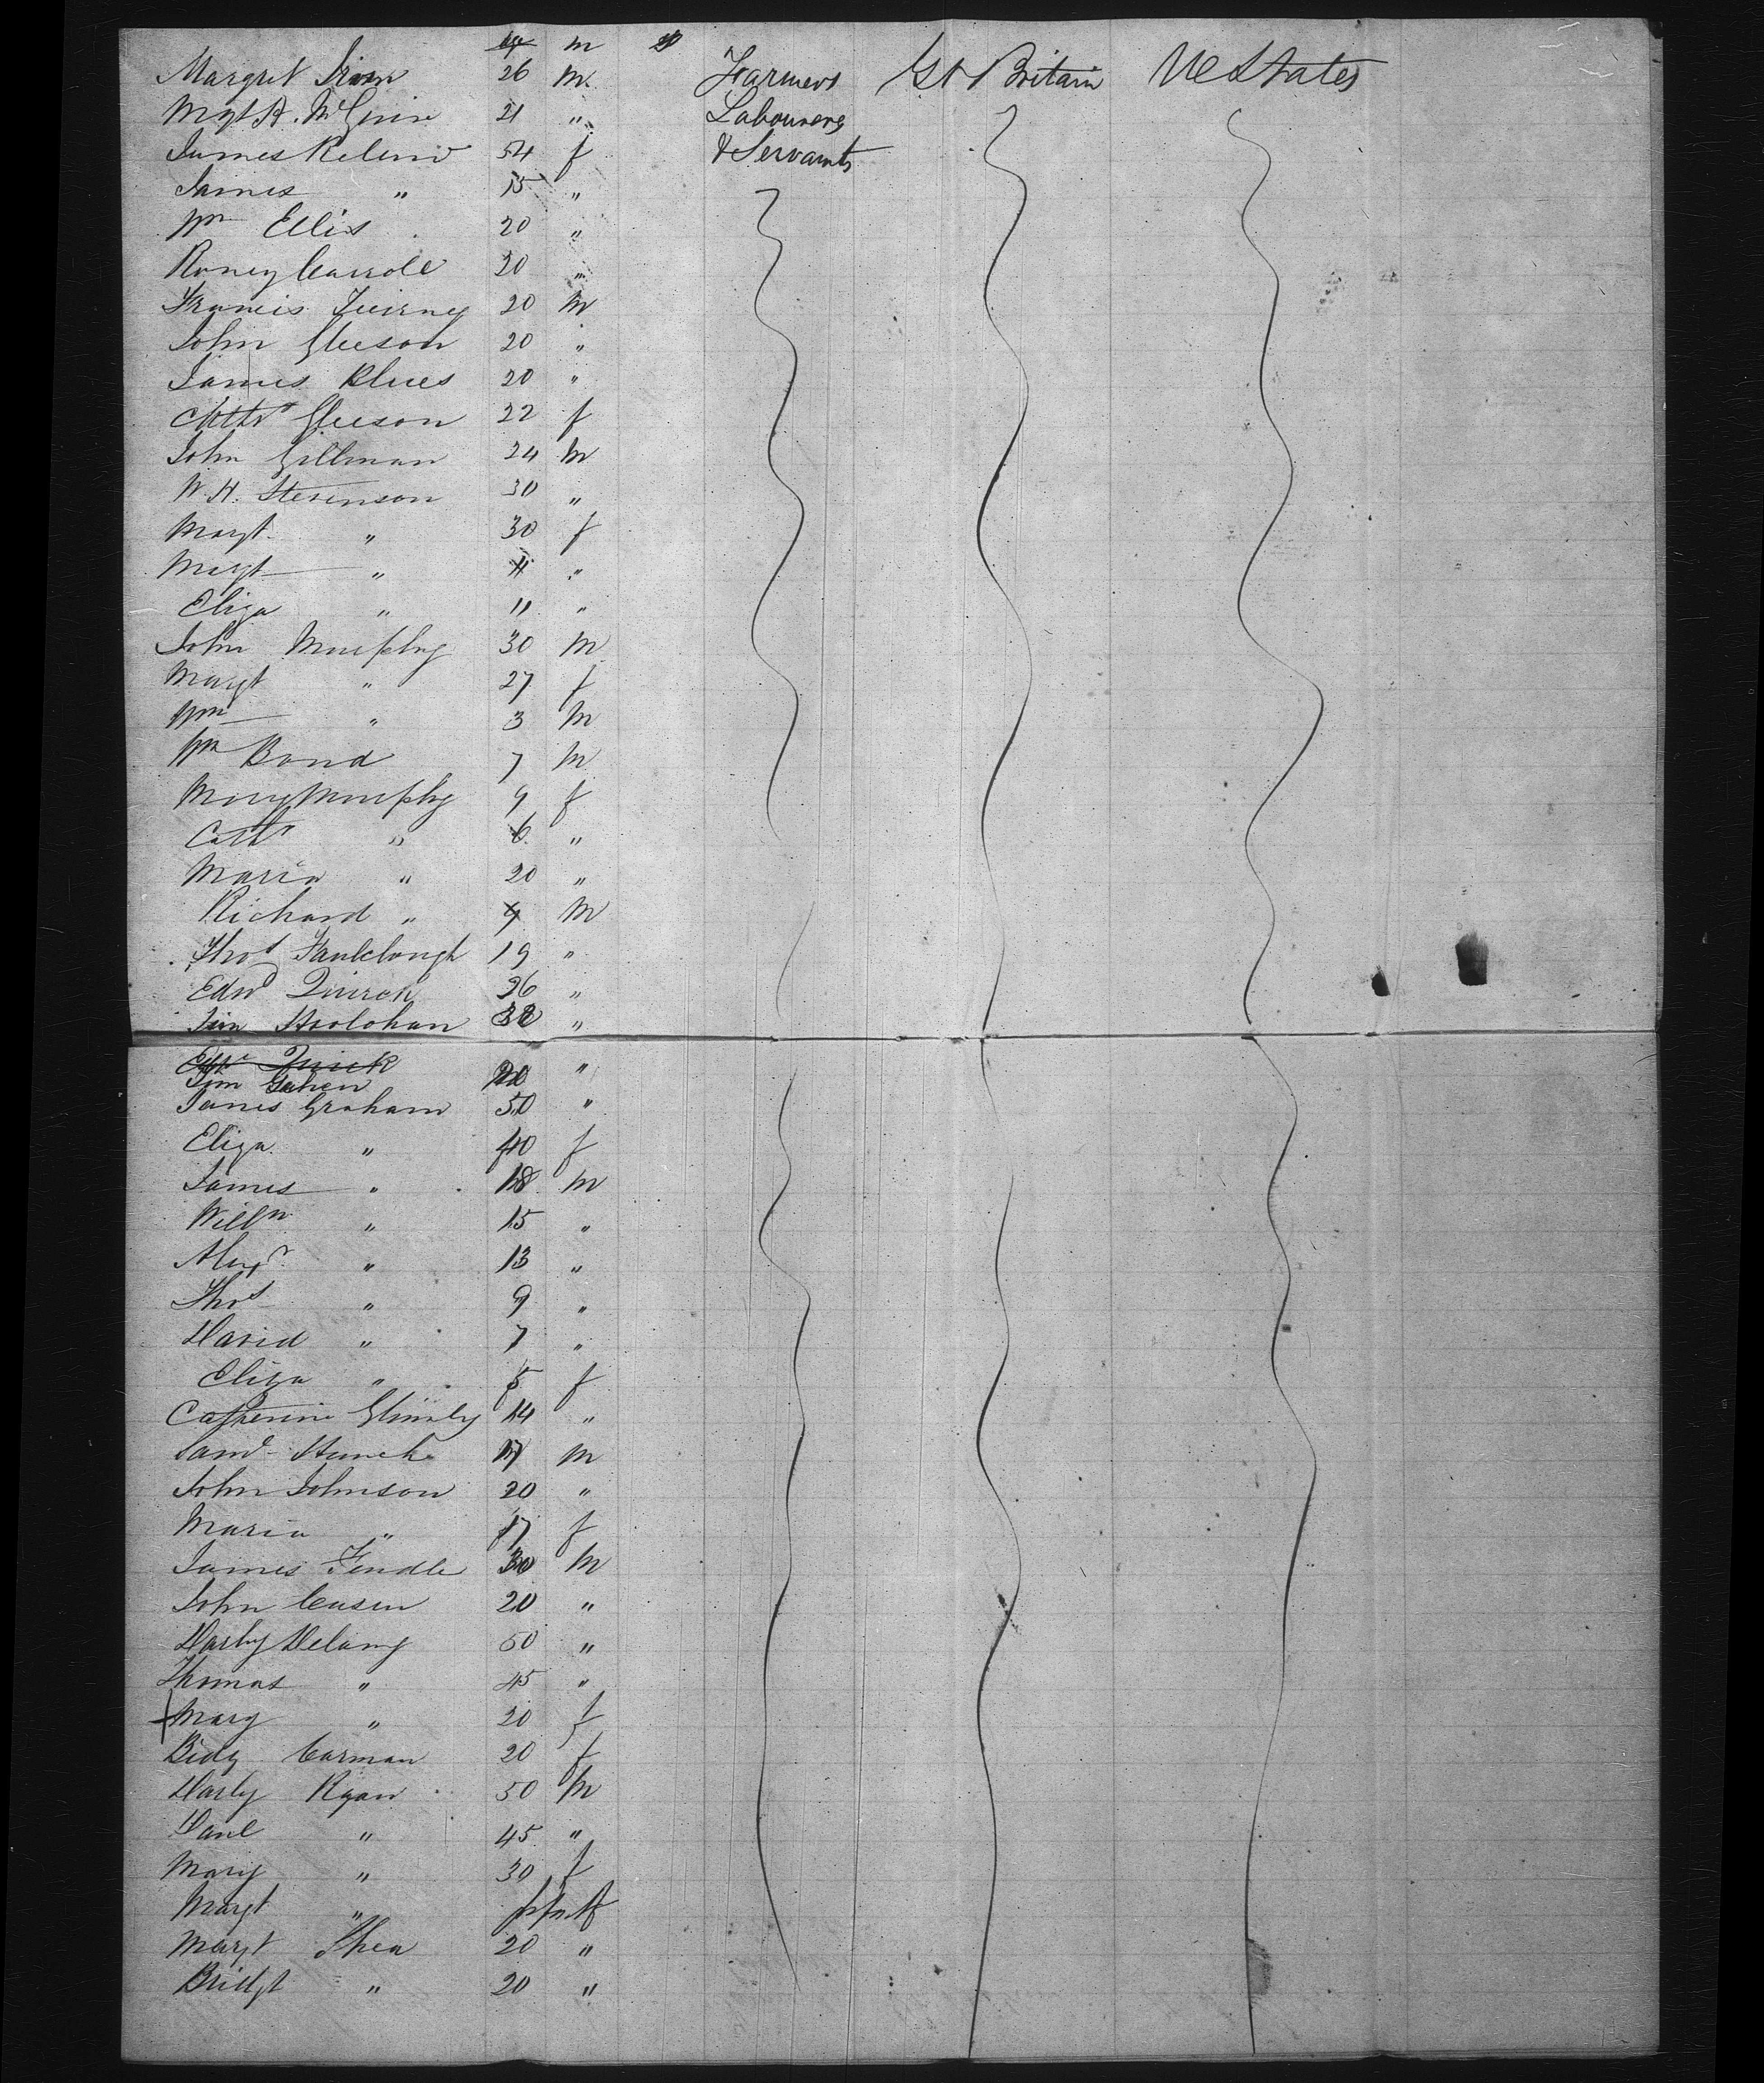 m
Margret 26 m. Farmers Gt Britain Ue States
Mgt A. McGuire 21 " Labourers
James 54 f & Servants
James " 15 "
Wm Ellis 20 "
Roney Carroll 20 "
Francis 20 M
John Gleeson 20 "
James Klues 20 "
Gleeson 22 f
John Gillman 24 M
W. H. Stevenson 30 "
Margt. " 30 f
Margt " "
Eliza " 11 "
John Murphy 30 M
Margt " 27 f
Wm " 3 M
Wm Bond 7 M
Mary Murphy 9 f
Cathr " 6 "
Maria " 20 "
Richard " 9 M
Thos Faulclough 19 "
Edwd Quirck 26 "
Holohan 32 "
Quirk "
Tim Gahen 20
James Graham 50 "
Eliza " 40 f
James " 18 M
Willm " 15 "
Alexr " 13 "
Thos " 9 "
David " 7 "
Eliza " 5 f
Catherine 14 "
Saml 17 M
John Johnson 20 "
Maria " 17 f
James Fendle 30 M
John Cusen 20 "
Darby Delany 50 "
Thomas " 45 "
Mary " 20 f
Bidy Carman 20 f
Darby Ryan 50 M
Danl " 45 "
Mary " 30 f
Margt " Infant
Margt Shea 20 "
Bridgt " 20 "